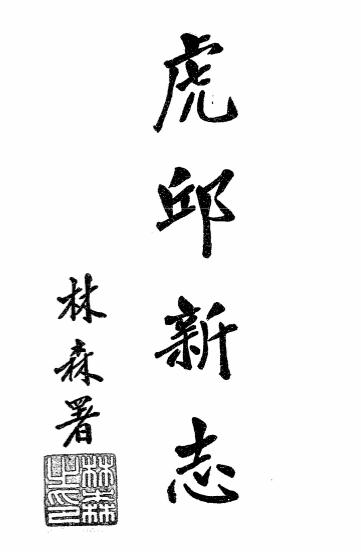 虎邱新志
林森署
林森之印